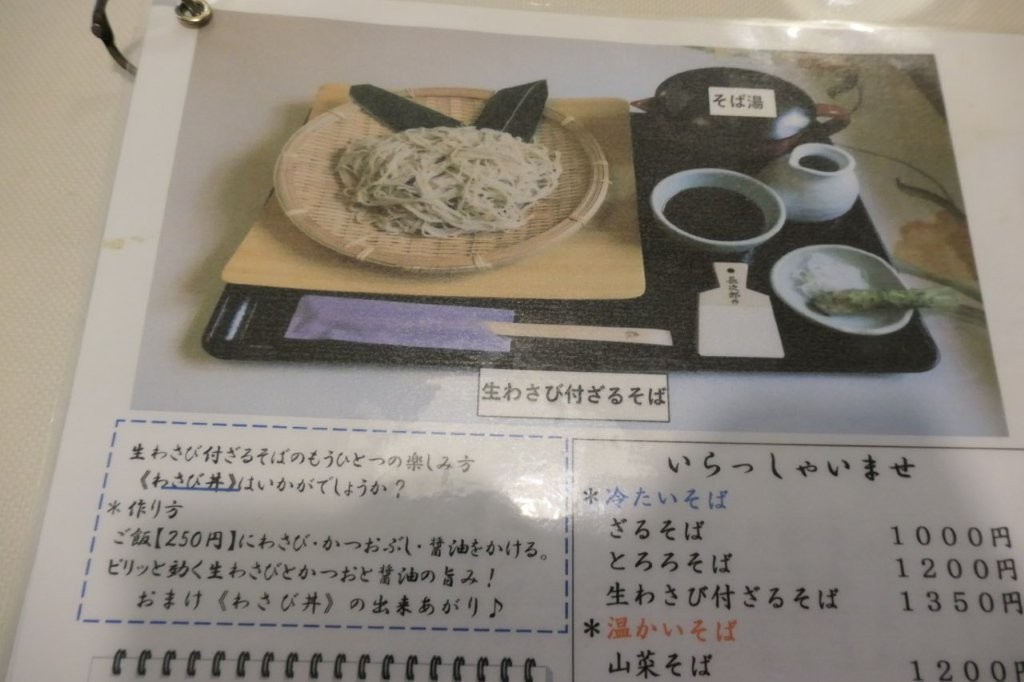 そば湯
長次郎作
生わさび付ざるそば
生わさび付ざるそばのもうひとつの楽しみ方
《わさび丼》はいかがでしょうか？
＊作り方
ご飯【250円】にわさび・かつおぶし・醤油をかける。
ピリッと効く生わさびとかつおと醤油の旨み！
おまけ《わさび丼》の出来あがり♪
いらっしゃいませ
＊冷たいそば
ざるそば 1000円
とろろそば 1200円
生わさび付ざるそば 1350円
＊温かいそば
山菜そば 1200円